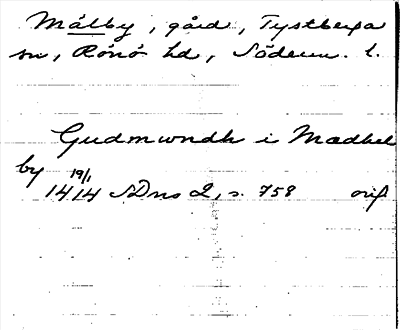 Målby, gård, Tystberga
sn, Rönö hd, Söderm. l.
Gudmwndh i Madhel
by
19/1
1414 SDns 2, s. 758 orig